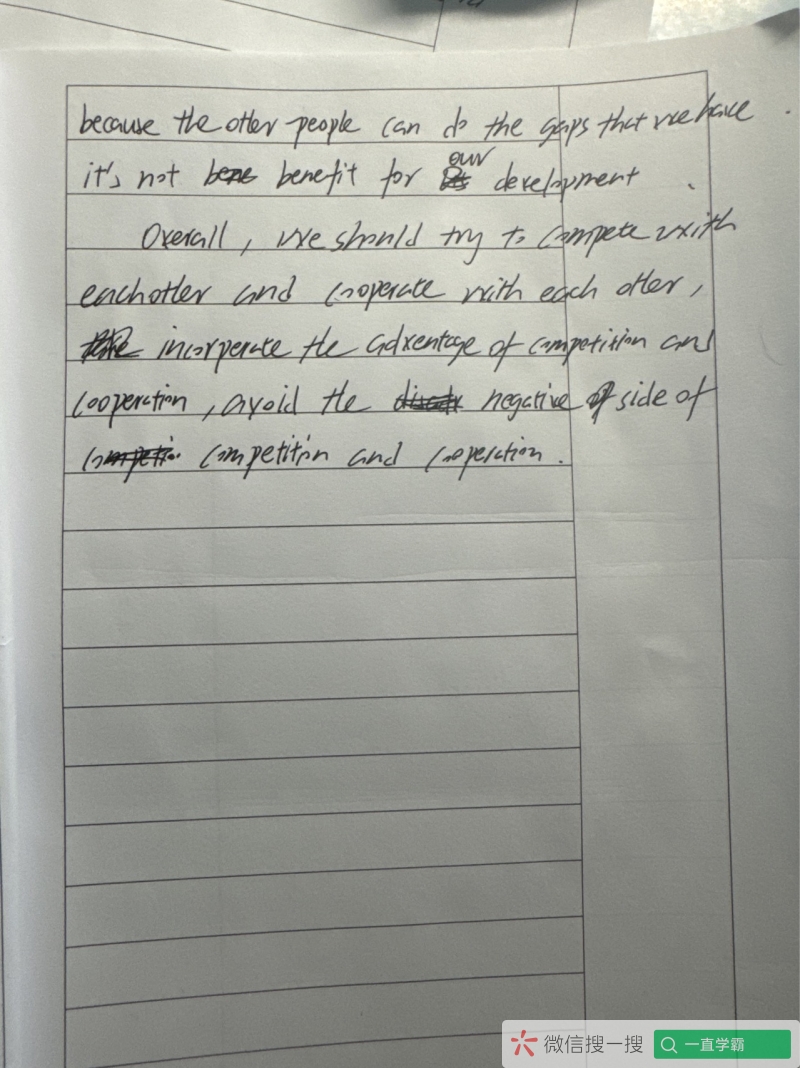 because the other people can do the gaps that we have.
it's not benefit for our development.
Overall, we should try to compete with
each other and cooperate with each other,
incorperate the adventage of competition and
cooperation, avoid the negative side of
competition and cooperation.
微信搜一搜 一直学霸